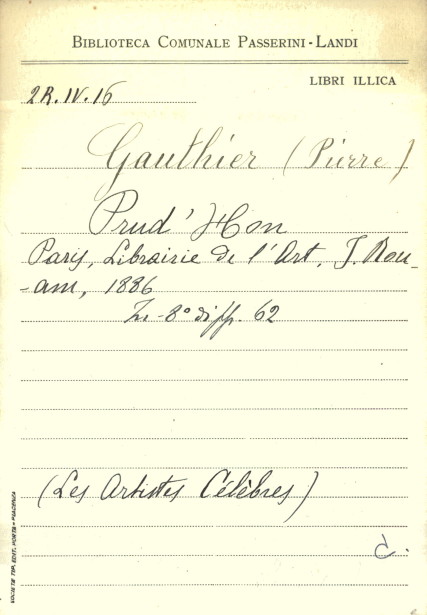 BIBLIOTECA COMUNALE PASSERINI-LANDI
LIBRI ILLICA
2R.IV.16
Gauthier (Pierre)
Prud'Hon
Paris, Librairie de l'Art, J. Rou-
-am, 1886
In-8° di pp. 62
(Les Artistes Célèbres)
C.